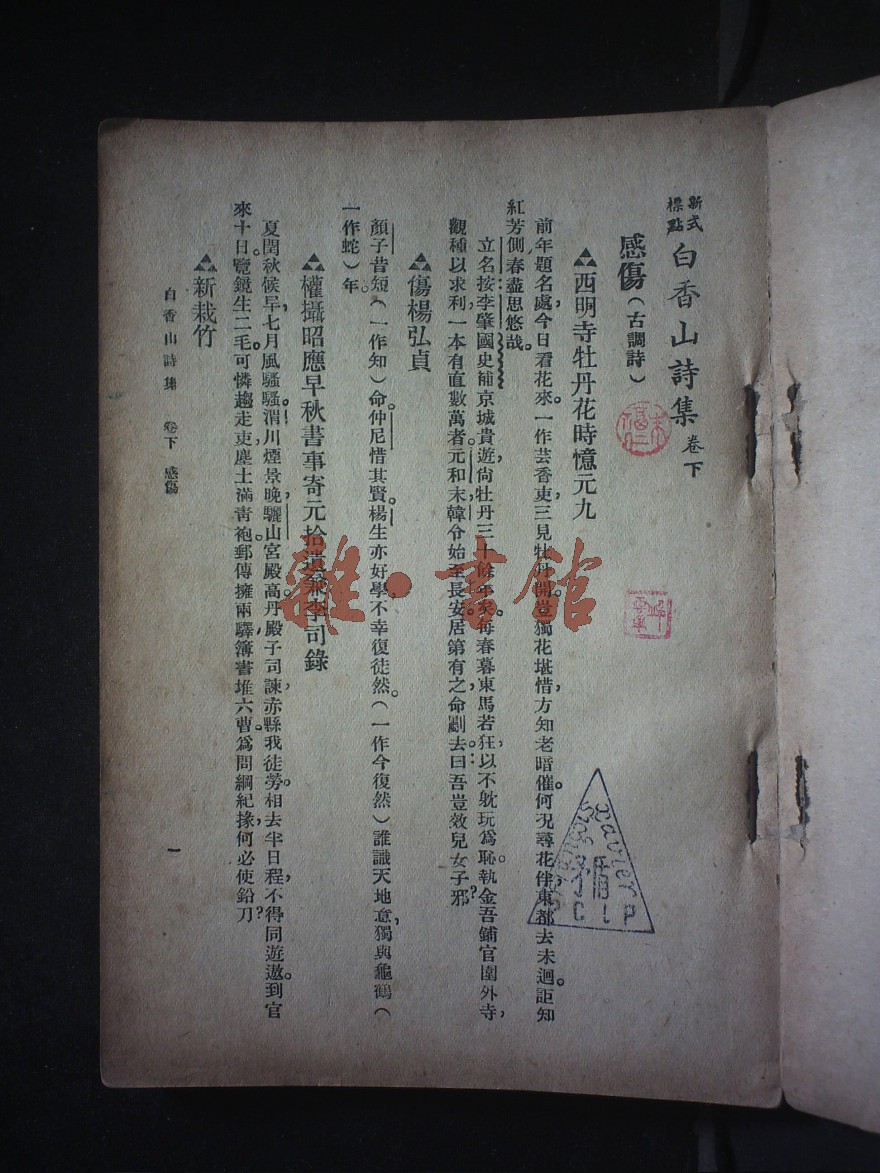 新式標點 白香山詩集 卷下
感傷(古調詩)
▲西明寺牡丹花時憶元九
前年題名處,今日看花來。一作芸香吏,三見牡丹開。豈獨花堪惜,方知老暗催。何況尋花伴,東都去未迴。詎知
紅芳側,春盡思悠哉。
立名按:李肇國史補,京城貴遊尙牡丹三十餘年矣。每春暮東馬若狂,以不躭玩爲恥。執金吾鋪官圍外寺,
觀種以求利,一本有直數萬者。元和末,韓令始至長安,居第有之,命劚去。曰:吾豈效兒女子邪?
▲傷楊弘貞
顏子昔短(一作知)命,仲尼惜其賢。楊生亦好學,不幸復徒然。(一作今復然)誰識天地意,獨與龜鶴(
一作蛇)年。
▲權攝昭應早秋書事寄元拾遺兼李司錄
夏閏秋候早,七月風騷騷。渭川煙景晚,驪山宮殿高。丹殿子司諫,赤縣我徒勞。相去半日程,不得同遊遨。到官
來十日,覽鏡生二毛。可憐趨走吏,塵土滿靑袍。郵傳擁兩驛,簿書堆六曹。爲問綱紀掾,何必使鉛刀?
▲新栽竹
白香山詩集 卷下 感傷
一
雜·書館
xavier
C L P